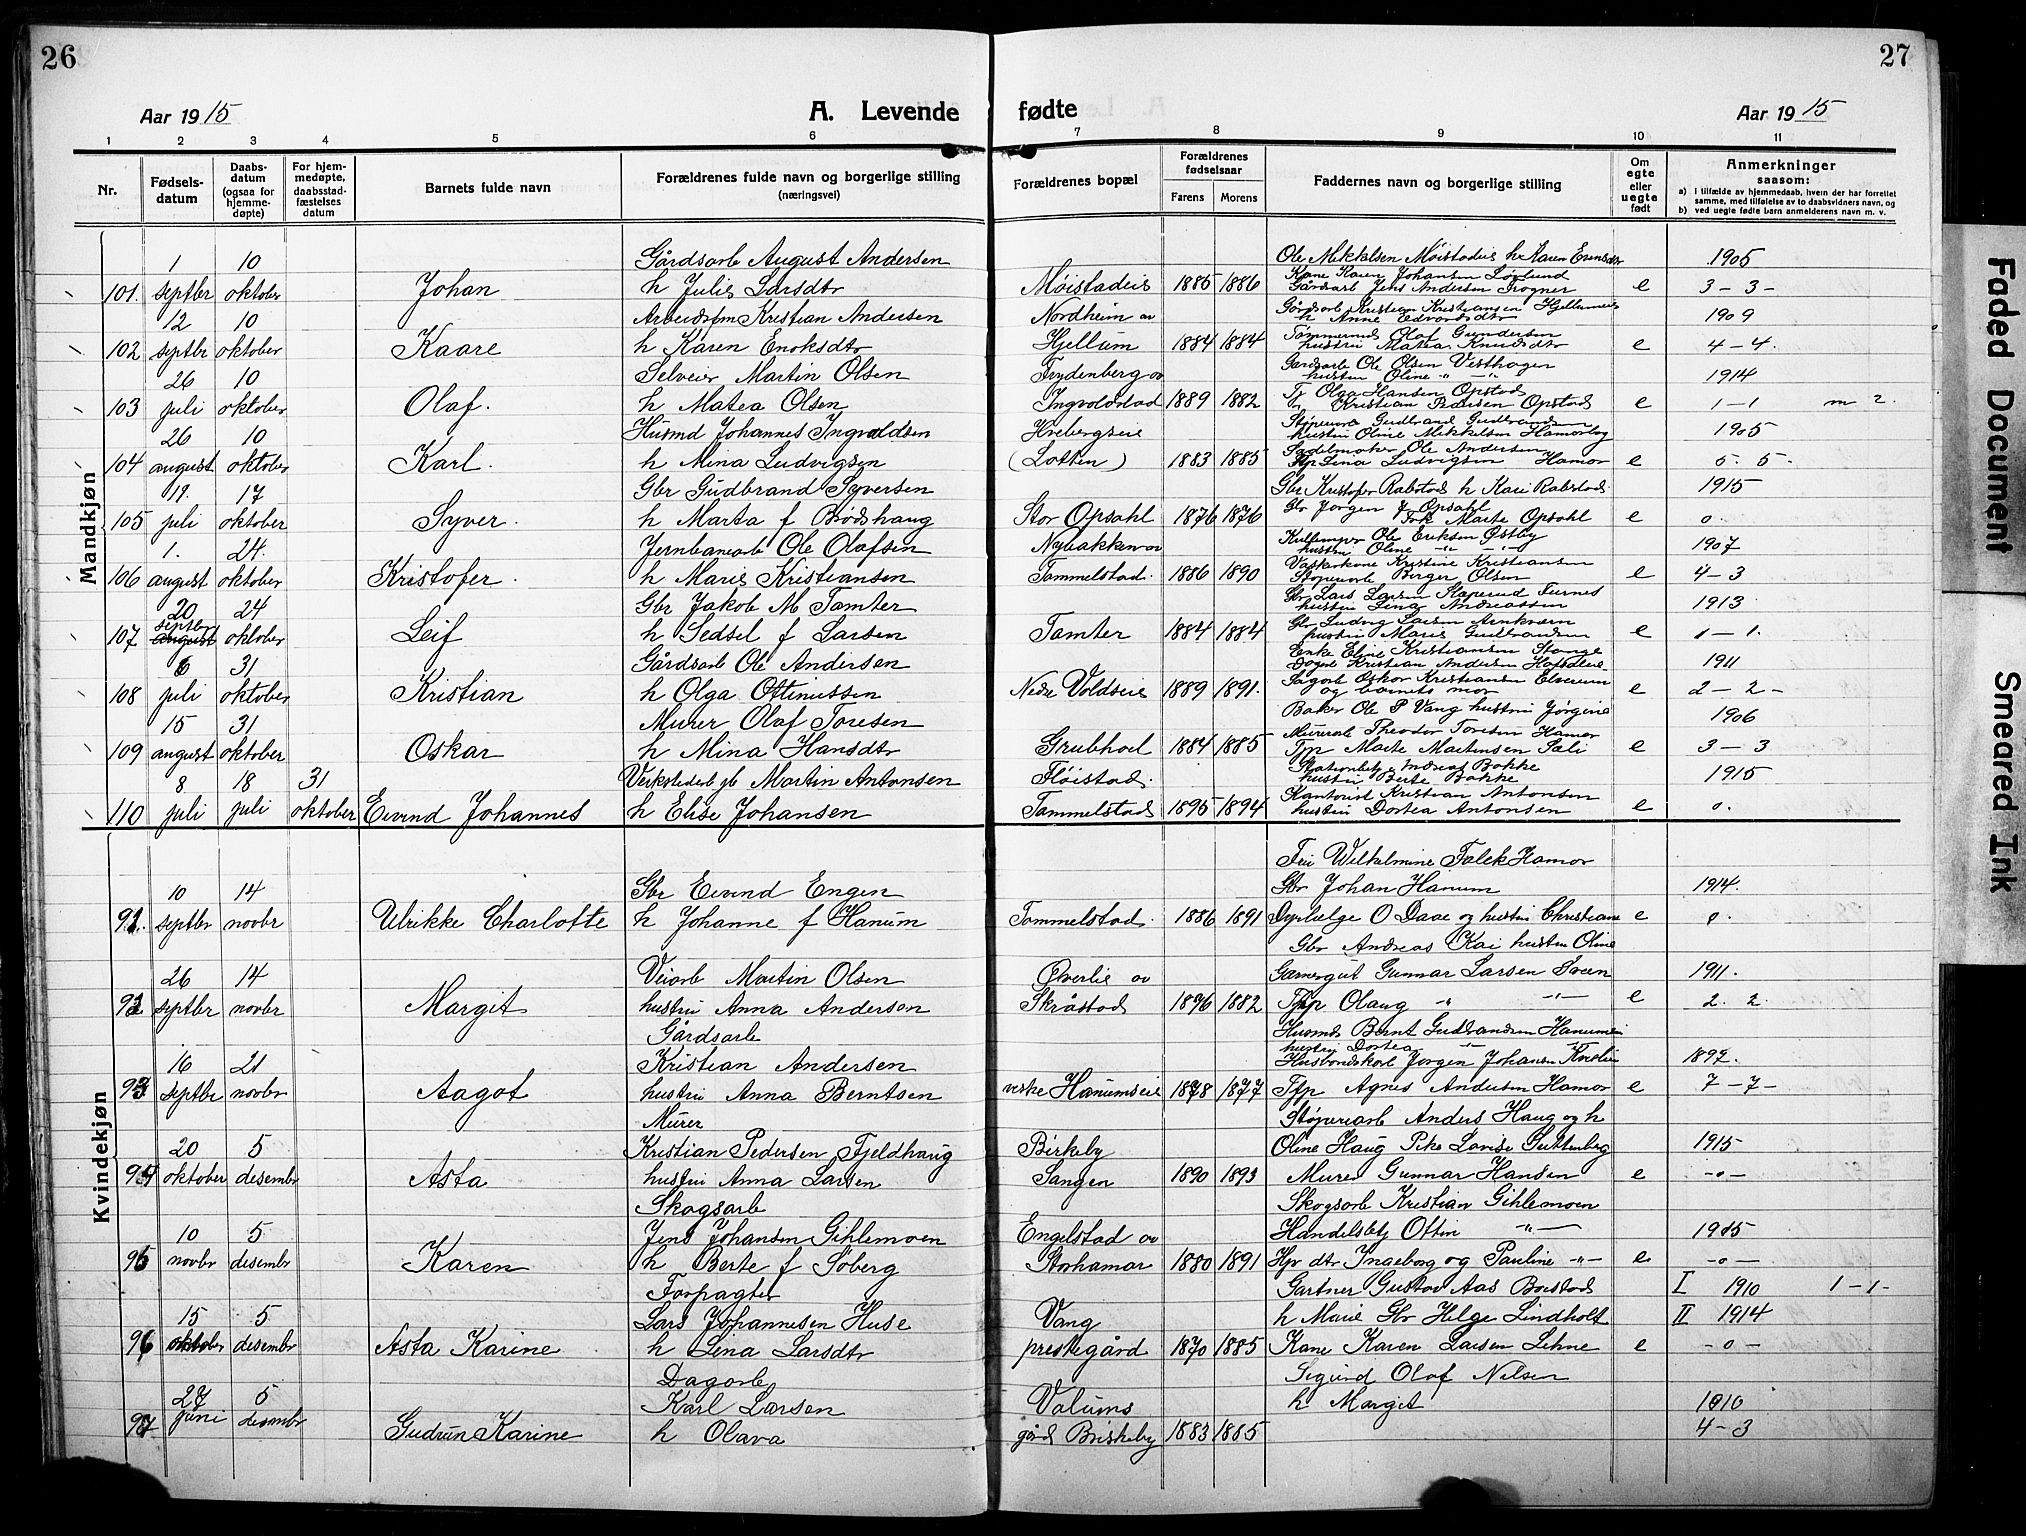 26
27
Aar 1915
A. Levende fødte
Aar 1915
1 2 3 4 5 6 7 8 9 10 11
Nr.
Fødselsdatum
Daabsdatum (ogsaa for hjemmedøpte)
For hjemmedøpte, daabsstadfæstelses datum
Barnets fulde navn
Forældrenes fulde navn og borgerlige stilling (næringsvei)
Forældrenes bopæl
Forældrenes fødselsaar
Farens Morens
Faddernes navn og borgerlige stilling
Om egte eller uegte født
Anmerkninger saasom:
a) I tilfælde av hjemmedaab, hvem der har forrettet samme, med tilføielse av to daabsvidners navn, og
b) ved uegte fødte barn anmelderens navn m. v.
Mandkjøn
1 10 Gårdsarb August Andersen Ole Mikkelsen Møistadeie h Karen 1905
101. septbr oktober Johan h Julie Larsdtr Møistadeie 1885 1886 Kone Karen Johansen Gårdsarb Jens Andersen e 3-3-
12 10 Kristian Andersen Nordheim av Gårdsarb Kristian Kristiansen Hjellumeie h Anne Edvardsdtr 1909
102 septbr oktober Kaare h Karen Enoksdtr Hjellum 1884 1884 Tømmermd Olaf Gundersen hustru Matea Knudsdtr e 4-4.
26 10 Selveier Martin Olsen Frydenberg av Gårdsarb Ole Olsen Vesthagen hustru Oline " -"- 1914
103 juli oktober Olaf. h Matea Olsen Ingvoldstad 1889 1882 Tj Olga Hansen Opstad Kristian Opstad e 1-1 m 2.
26 10 Husmd Johannes Ingvoldsen Gudbrand Gudbrandsen hustru Oline Mikkelsen 1905
104 august oktober Karl. h Mina Ludvigsen (Lotten) 1883 1885 Sadelmaker Ole Andersen Lina Ludvigsen Hamar e 5. 5.
19. 17 Gbr Gudbrand Syversen Gbr Kristofer Rabstad h Kari Rabstad 1915
105 juli oktober Syver. h Marta f Brødshaug Stor Opsahl 1876 1876 Gbr Jørgen J Opsahl Frk Marte Opsahl e 0.
1. 24. Jernbanearb Ole Olafsen Nybakken av Ole Eriksen Østby hustru Oline " -"- 1907
106 august oktober Kristofer. h Maris Kristiansen Tommelstad. 1886 1890 Vaskekone Kristine Kristiansen Støperiarb Birger Olsen e 4-3
20 24 Gbr Jakob M Tomter Gbr Lars Larsen Furnes hustru Lina Andreassen 1913
107 septbr august oktober Leif h Sedsel f Larsen Tomter 1884 1884 Gbr Ludvig Larsen Arnkværn hustru Maris Gudbrandsen e 1-1.
6 31 Gårdsarb Ole Andersen Enke Eline Kristiansen Stange Kristian Andersen 1911
108 juli oktober Kristian h Olga Ottinussen Nedre Voldseie 1889 1891. Sagarb Oskar Kristiansen Elverum og barnets mor e 2-2-
15 31 Murer Olaf Toresen Baker Ole P Vang hustru Jørgine 1906
109 august oktober Oskar h Mina Hansdtr Grubhoel 1884 1885 Murerarb Theodor Toresen Hamar Tjp Marte Martinsen Sæli e 3-3
8 18 31 Martin Antonsen Fløistad. Stationsbetj Andreas Bakke hustru Berte Bakke 1915
110 juli juli oktober Eivind Johannes h Elise Johansen Tommelstad 1895 1894 Kontorist Kristian Antonsen hustru Dortea Antonsen e 0.
Kvindekjøn
Fru Wilhelmine Falck Hamar
10 14 Gbr Eivind Engen Gbr Johan Hanum 1914.
91. septbr novbr Ulrikke Charlotte h Johanne f Hanum Tommelstad. 1886 1891 O Daae og hustru Christiane e 0.
Gbr Andreas Kai hustru Oline
26 14 Veiarb Martin Olsen Øverlie av Gunnar Larsen 1911.
92 septbr novbr Margit hustru Anna Andersen Skråstad 1896 1882 Tjp Olaug " -"- e 2. 2.
Gårdsarb Husmd Bernt Gudbrandsen hustru Dortea
16 21 Kristian Andersen Jørgen Johansen 1897.
93 septbr novbr Aagot hustru Anna Berntsen Hanumseie 1878 1877 Tjp Agnes Andersen Hamar e 7-7-
Murer Støperiarb Anders Haug og h
20 5 Kristian Pedersen Fjeldhaug Birkeby Oline Haug Pike Lovise 1915
94 oktober desembr Asta hustru Anna Larsen Sangen 1890 1893 Murer Gunnar Hansen e -0-
Skogsarb Skogsarb Kristian Gihlemoen
10 5 Jens Johansen Gihlemoen Engelstad av Handelsbtj Ottin -"- 1915
95 novbr desembr Karen h Berte f Søberg Storhamar 1880 1891 Hpr dtr Ingeborg og Pauline -"- e -0-
Forpagter Gartner Gustav Aas I 1910 1-1-
15 5 Lars Johannesen Huse Vang h Marie Gbr Helge Lindholt II 1914
96 oktober desembr Asta Karine h Lina Larsdtr prestegård 1870 1885 Kone Karen Larsen Lehne e -0-
Dagarb Sigurd Olaf Nilsen
27 5 Karl Larsen Valums h Margit 1910
97 juni desembr Gudrun Karine h Olava gård Briskeby 1883 1885 4-3
Faded Document
Smeared Ink